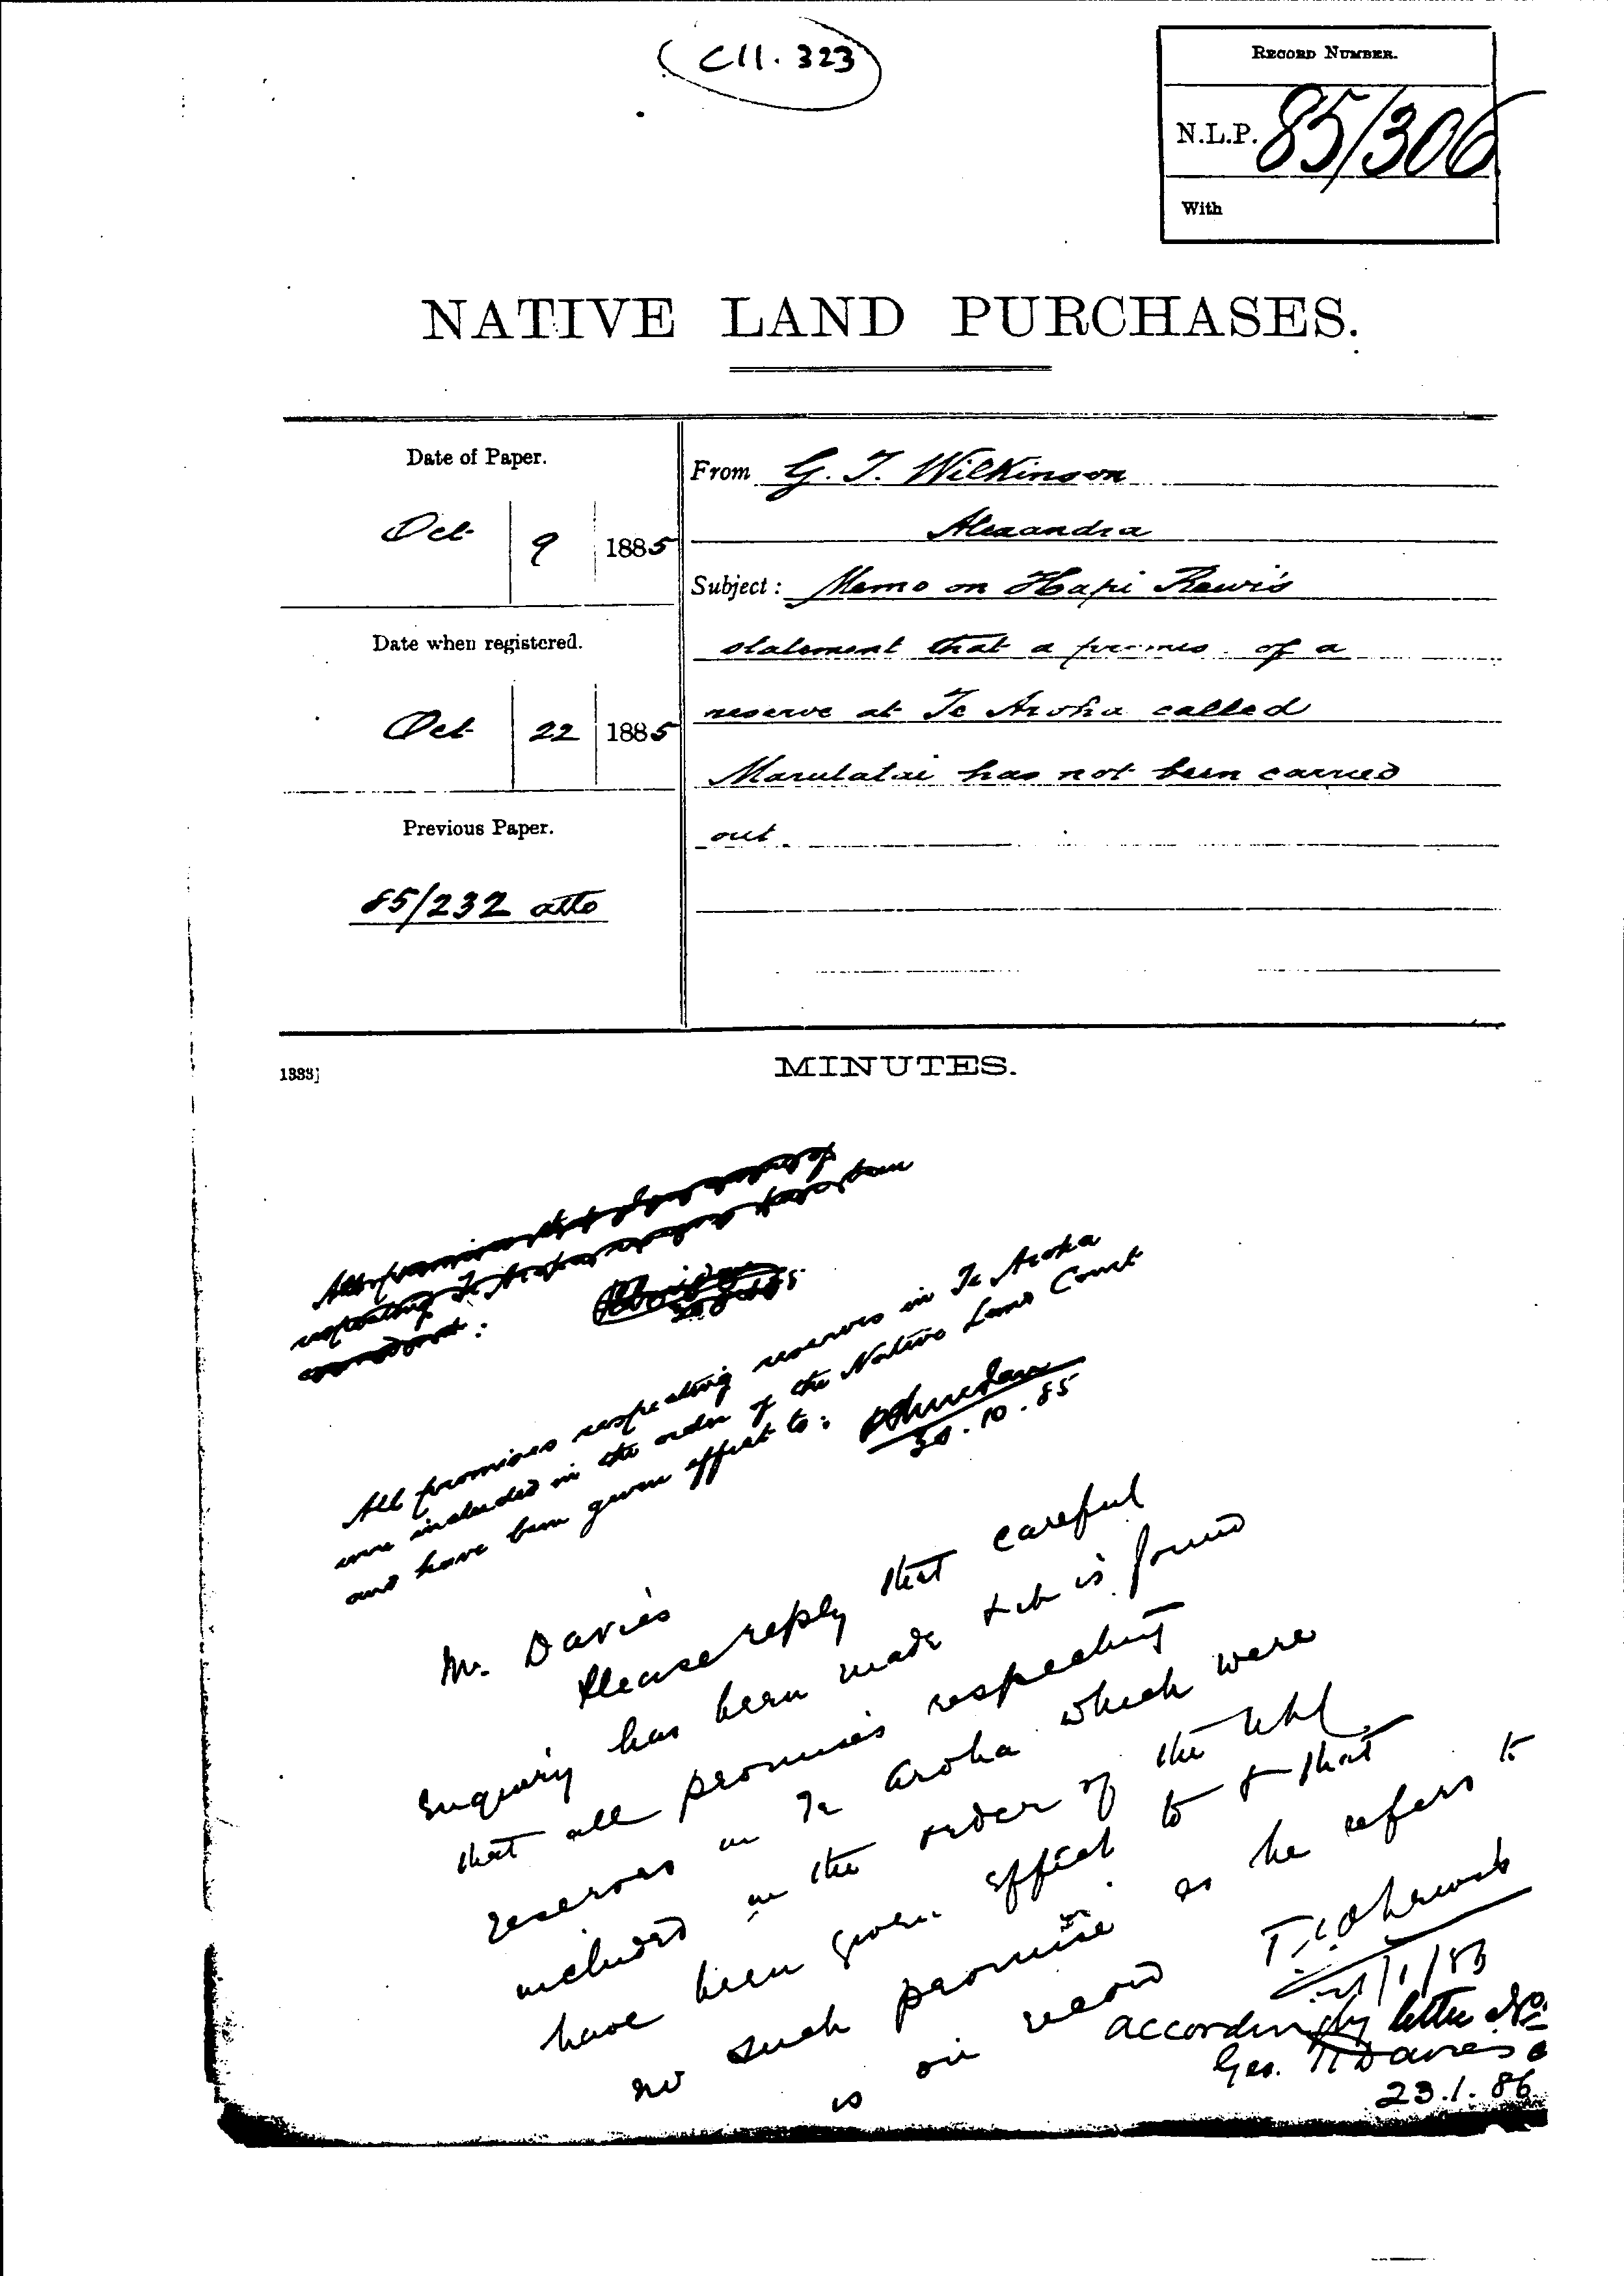 C11. 323
RECORD NUMBER.
N.L.P. 85/306
With
NATIVE LAND PURCHASES.
Date of Paper.
Oct 9 1885
Date when registered.
Oct 22 1885
Previous Paper.
85/232 atto
From G. T. Wilkinson
Alexandra
Subject: Memo on Hapi Rewi's
statement that a promes of a
reserve at Te Aroha called
Marulatai has not been carried
out
1333]
MINUTES.
All promises
respecting Te Aroha
All promises respecting reserves in Te Aroha
were included in the order of the Native Land Court
and have been given effect to:
30.10.85
Mr. Davies
Please reply that careful
enquiry has been made & it is found
that all promises respecting
reserves in Te Aroha which were
included in the order of the
have been given effect to & that
no such promise as he refers to
is on record
/1/86
accordingly letter No.
Geo. H Davies
23.1.86